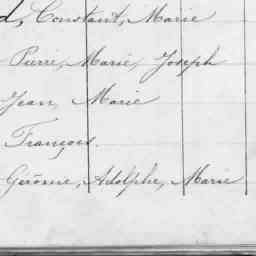 d, Constant, Marie
Pierre, Marie, Joseph
Jean, Marie
François.
Gerôme, Adolphe, Marie